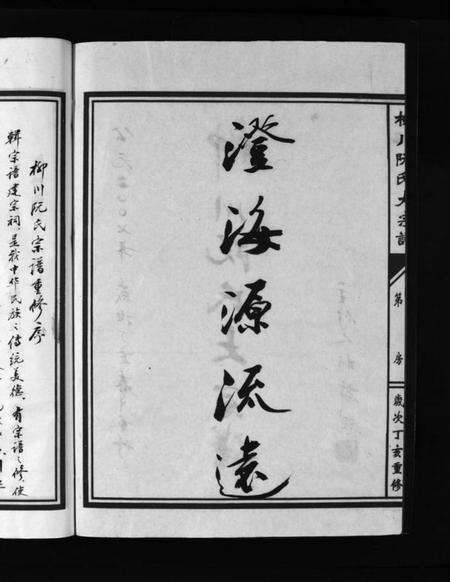 柳川阮氏大宗譜
第
房
歲次丁亥重修
澄海源流遠
柳川阮氏宗譜重修序
輯宗譜建宗祠，是我中华民族之傳統美德，有宗譜之修使